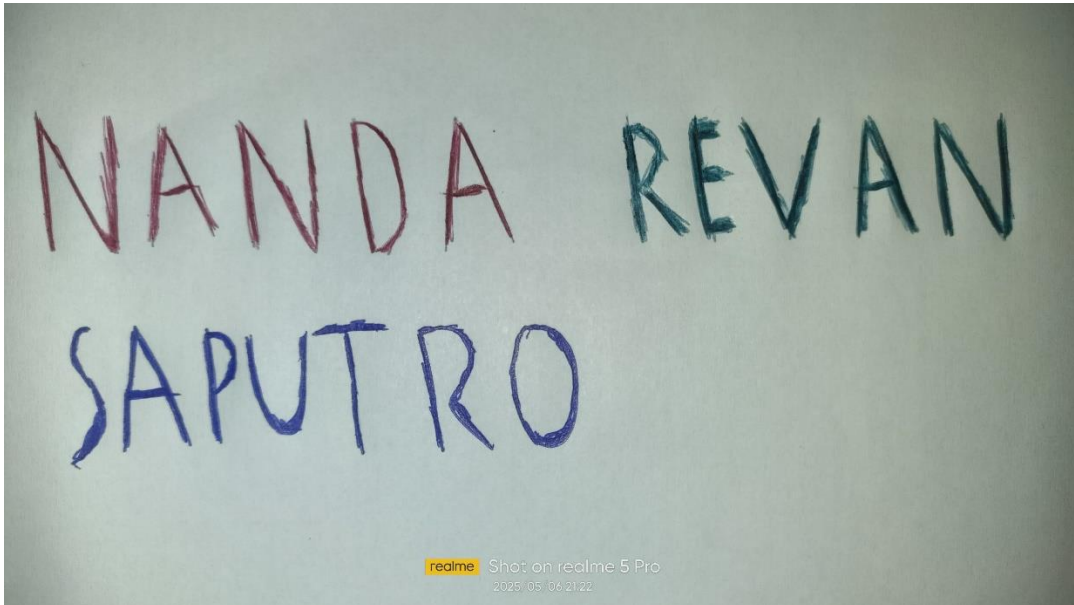 NANDA REVAN
SAPUTRO
realme Shot on realme 5 Pro
2025.05.06 21:22